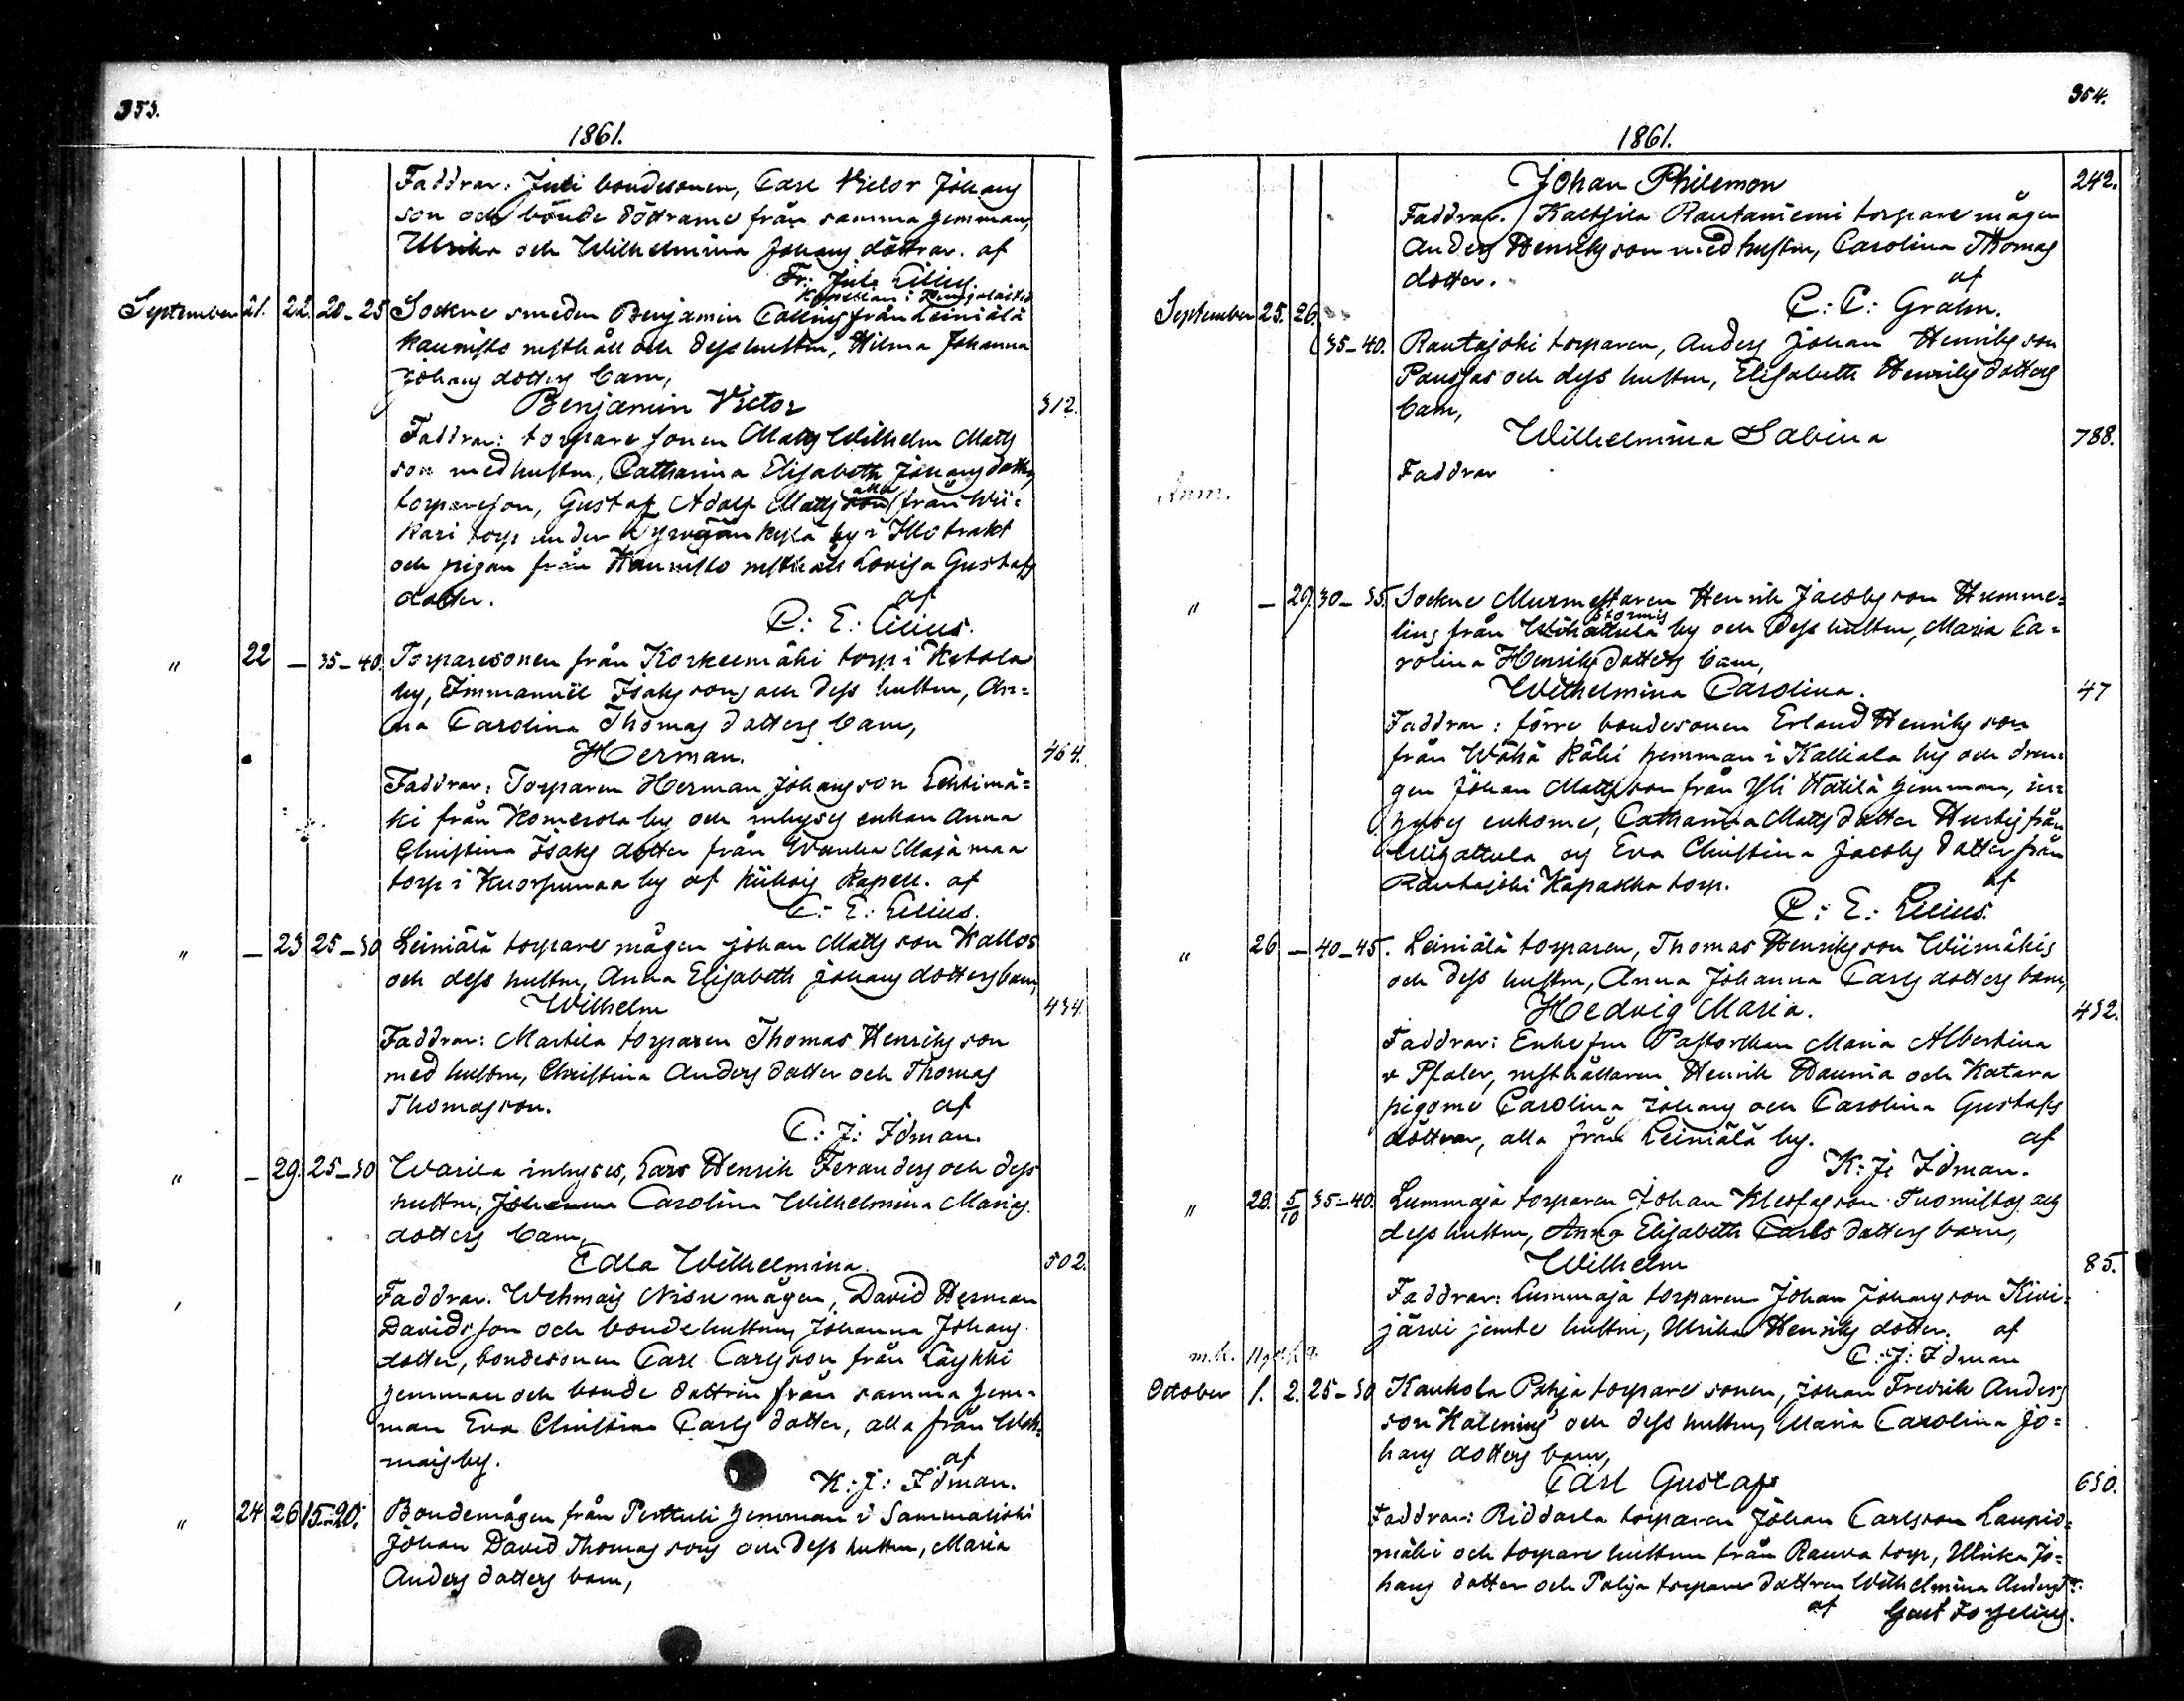 353.
1861.
Faddrar: Juti bondesonen, Carl Victor Johans
son och bonde döttrarne från samma hemman,
Ulrika och Wilhelmina Johans döttrar. af
Fr: Lilius.
September 21. 22. 20-25 Sockne smeden Benjamin från Leiniälä
rusthåll och dess hustru, Hilma Johanna
Johans dotters barn,
Benjamin Victor 312.
Faddrar: torparesonen Matts Wilhelm Matts
son med hustru, Catharina Elisabeth Johans dotter,
torpareson, Gustaf Adolf Matts son alla från Wii-
kari torp under by i trakt
och pigan från rusthåll Lovisa Gustafs
dotter. af
C: E: Lilius.
" 22 — 35-40. Torparesonen från Korkeemäki torp i Ketola
by, Immanuel Isaks son och dess hustru, An=
na Carolina Thomas dotters barn,
Herman. 464.
Faddrar: Torparen Herman Johansson Lehtimä=
ki från by och inhyses enkan Anna
Christina Isaks dotter från Wanha Maja maa
torp i Kuorsumaa by af Kiikois Kapell. af
C: E: Lilius.
" — 23 25-30 Leiniälä torpare mågen Johan Matts son Kallos
och dess hustru, Anna Elisabeth Johans dotters barn,
Wilhelm 434.
Faddrar: Martila torparen Thomas Henriks son
med hustru, Christina Anders dotter och Thomas
Thomasson. af
C: J: Idman.
" — 29. 25-30 Warila inhyses, Lars Henrik Ferander och dess
hustru, Johanna Carolina Wilhelmina Marias
dotters barn,
Edla Wilhelmina. 502.
Faddrar. Wehmais Nisu mågen, David Herman
Davidsson och bondehustrun, Johanna Johans
dotter, bondesonen Carl Carlsson från
hemman och bonde dottren från samma hem=
man Eva Christina Carls dotter, alla från Weh=
mais by. af
K: J: Idman.
" 24 26 15-20. Bondemågen från Perttuli hemman i Sammaljoki
Johan David Thomas son och dess hustru, Maria
Anders dotters barn,
354.
1861.
Johan Philemon 242.
Faddrar. Rautaniemi torpare mågen
Anders Henriksson med hustru, Carolina Thomas
dotter. af
C: C: Grahn.
September 25. 26.
35-40. Rautajoki torparen, Anders Johan Henriks son
och dess hustru, Elisabeth Henriks dotters
barn,
Wilhelmina Sabina 788.
Faddrar
Anm.
" — 29. 30-35. Sockne Murmestaren Henrik Jacobs son Humme=
lins från by och dess hustru, Maria Ca=
rolina Henriks dotters barn,
Wilhelmina Carolina. 47
Faddrar: förre bondesonen Erland Henriks son
från Wähä hemman i Kalliala by och dren-
gen Johan Mattsson från Yli hemman, in=
hyses enkorne, Catharina Matts dotter från
och Eva Christina Jacobs dotter från
Rautajoki torp. af
C: E: Lilius.
" 26 — 40-45. Leiniälä torparen, Thomas Henriksson Wiimäkis
och dess hustru, Anna Johanna Carls dotters barn,
Hedvig Maria. 432.
Faddrar: Enkefru Pastorskan Maria Albertina
v Pfaler, rusthållaren Henrik och
pigorne Carolina Johans och Carolina Gustafs
döttrar, alla från Leiniälä by. af
K: J: Idman.
" 28. 5/10 35-40. Lummaja torparen Johan Kleofas son Tuomistos och
dess hustru, Anna Elisabeth Carls dotters barn,
Wilhelm 85.
Faddrar: Lummaja torparen Johan Johansson Kivi=
järvi jemte hustru, Ulrika Henriks dotter. af
C: J: Idman
October 1. 2. 25-30 Kaukola Pohja torpare sonen, Johan Fredrik Anders
son Kalenius och dess hustru, Maria Carolina Jo=
hans dotters barn,
Carl Gustaf 650.
Faddrar: Riddarla torparen Johan Carlsson
mäki och torpare hustrun från Rauva torp, Ulrika Jo=
hans dotter och Pohja torpare dottren Wilhelmina Anders dr.
af Gust